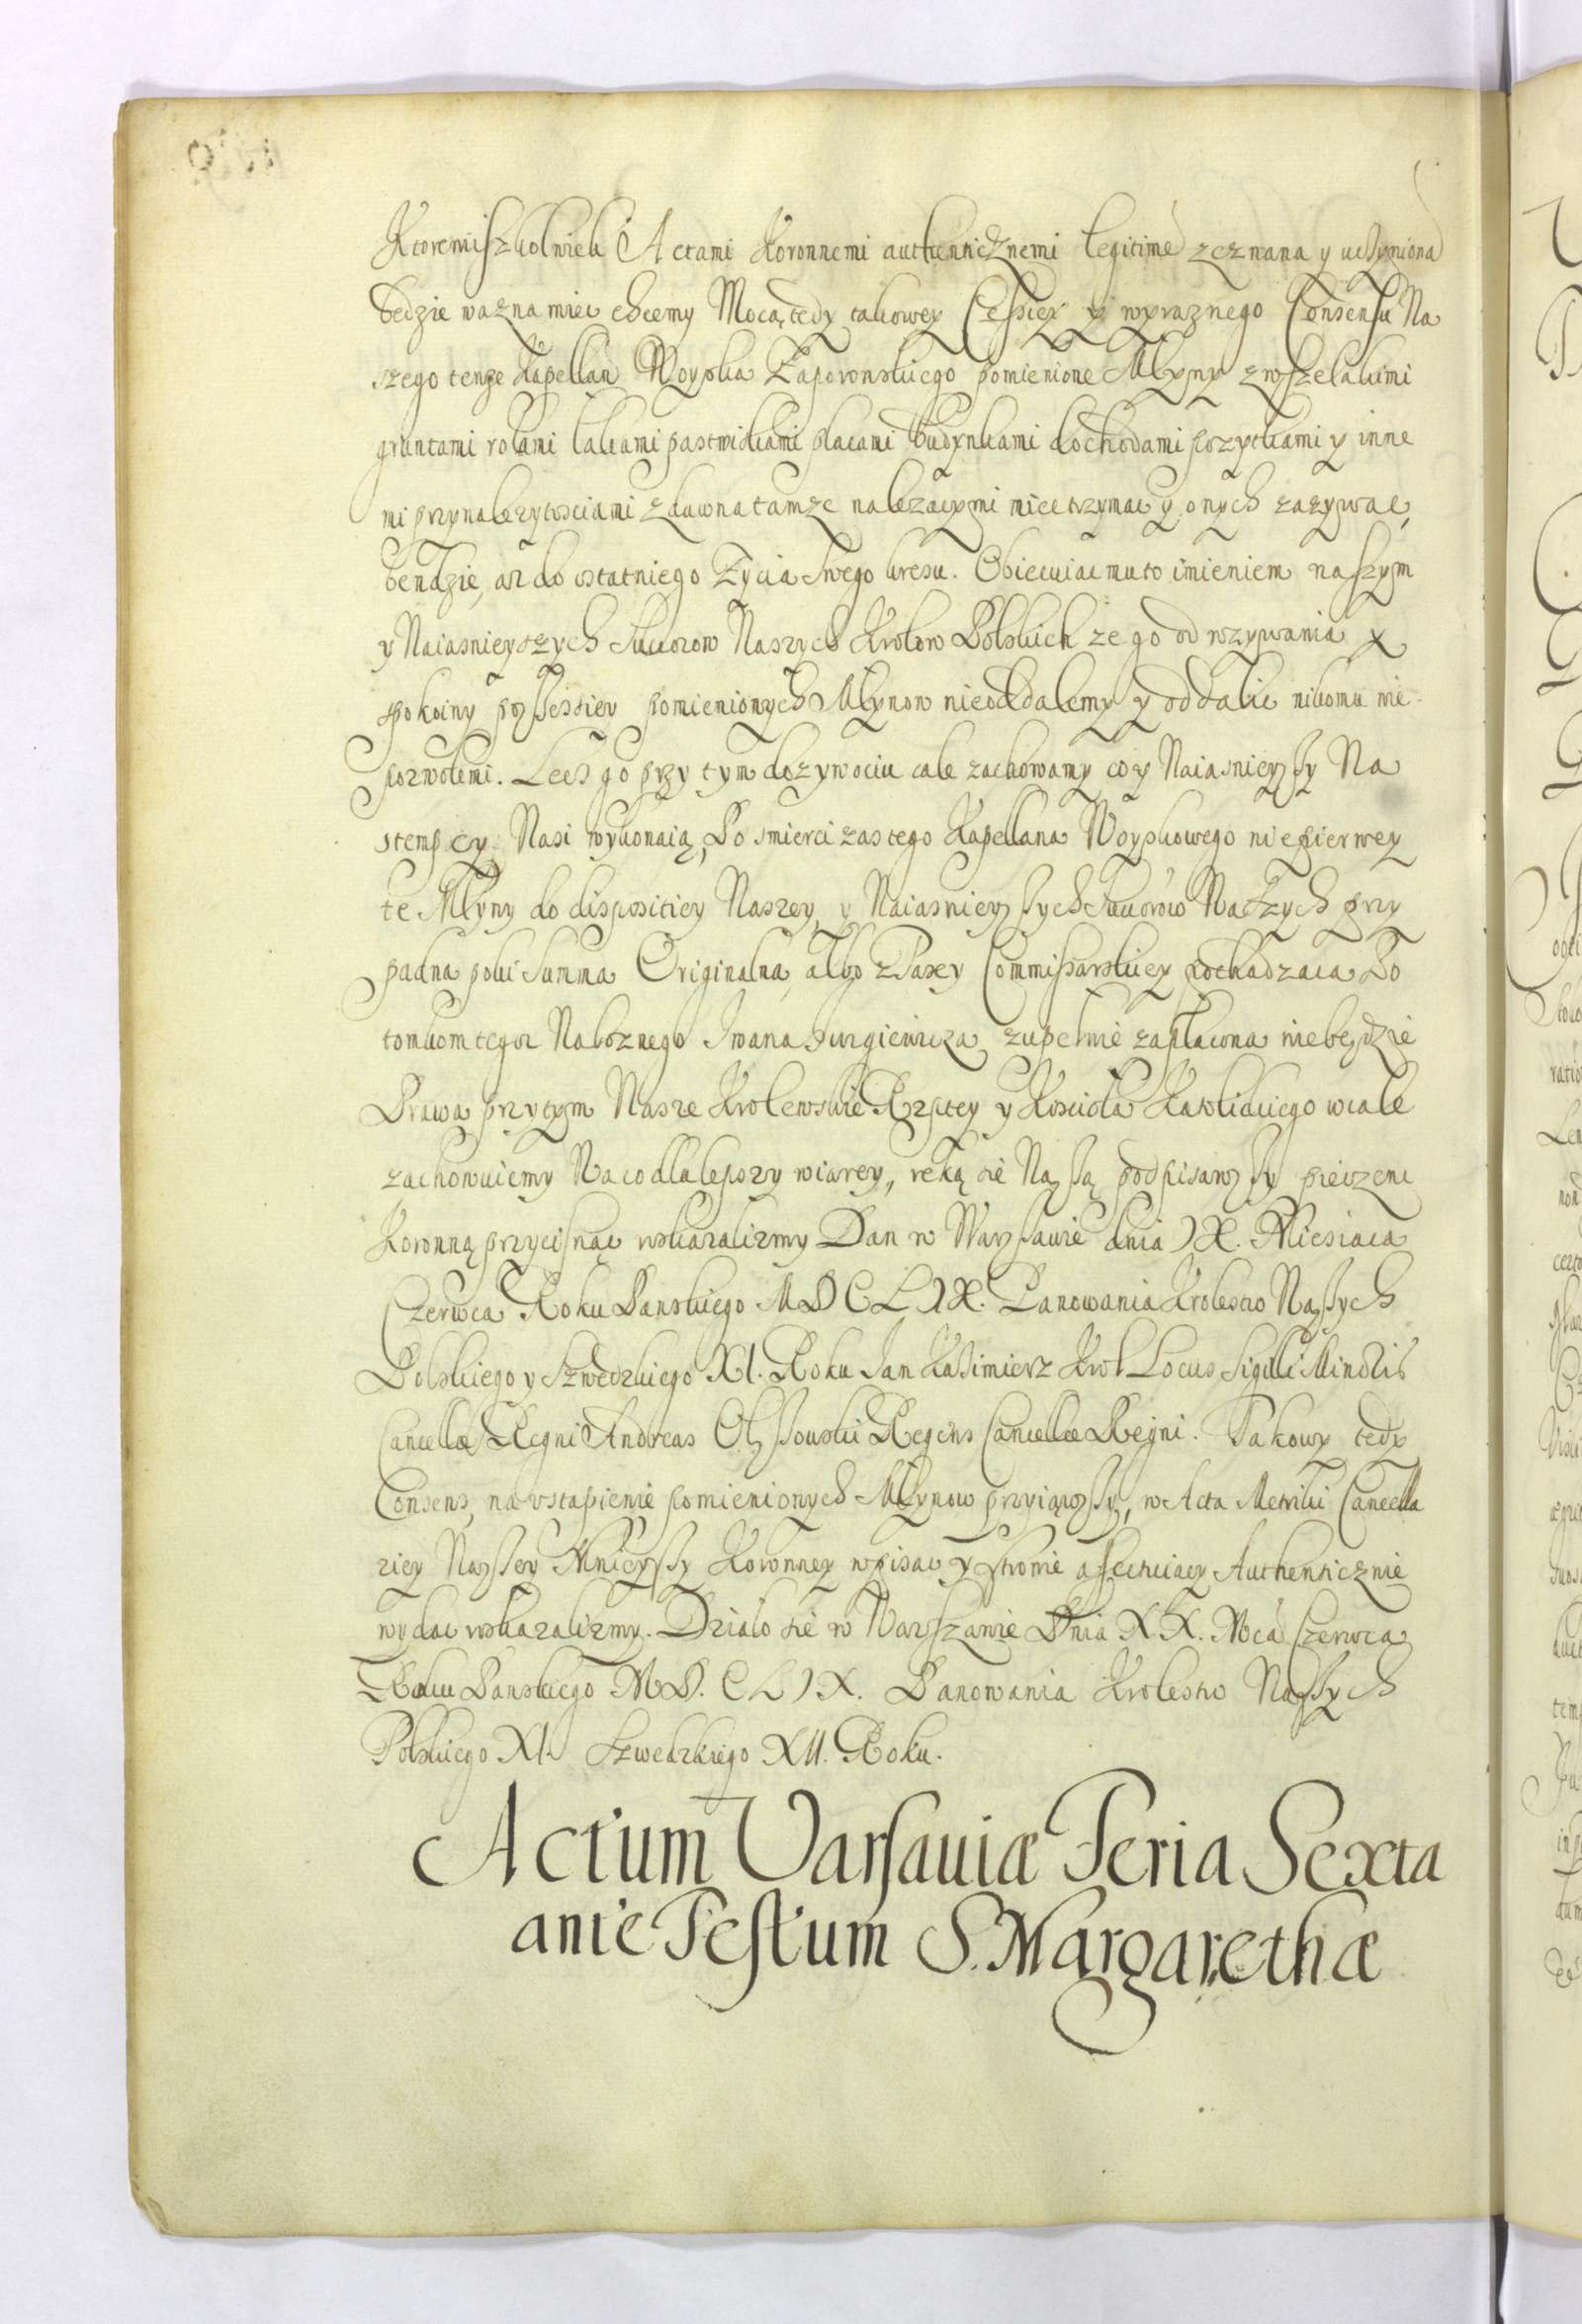 Ktoremiszkolwiek Actami Koronnemi authenticznemi legitime zeznana y uczyniona
bedzie wazna miec chcemy Mocą tedy takowey Cessiey y wyraznego Consensu Na
szego tenze Kapellan Woyska Zaporowskiego pomienione Młyny z wszelakimi
gruntami rolami lakami pastwiskami placami budynkami dochodami pozytkami y inne
mi przynaleznosciami zdawna tamze nalezącymi miec trzymac y onych zazywac
bendzie, az do ostatniego Zycia swego kresu. Obiecuiac mu to imieniem naszym
y Naiasnieyszych Sukcorow Naszych Krolow Polskich ze go od uzywania y
spokoiny possessiey pomienionych Młynow nieoddalemy y oddalic nikomu nie
pozwolemi. Lecz go przy tym dozywociu cale zachowamy co y Naiasnieyszy Na
stempcy Nasi wykonaią, Po smierci zas tego Kapellana Woyskowego niepierwey
te Młyny do dispositiey Naszey, y Naiasnieyszych Sukcorow Naszych przy
padna poki Summa Originalna, albo z Taxey Commissarskiey pochadzaca Po
tomkom tegoz Naboznego Iwana Jurgiewicza zupełnie zapłacona niebędzie
Prawa przytym Nasze Krolewskie Rzptey y Kosciola Katolickiego wcale
zachowuiemy Na co dla lepszy wiarey, reką sie Naszą podpisawszy pieczenc
Koronną przycisnąc rozkazalizmy Dan w Warszawie dnia IX. Miesiaca
Czerwca Roku Panskiego MDCLIX. Panowania Krolestw Naszych
Polskiego y Szwedzkiego XI. Roku Jan Kazimierz Krol Locus Sigilli Minoris
Cancellæ Regni Andreas Olszowski Regens Cancellæ Regni. Takowy tedy
Consens, na ustapienie pomienionych Młynow przyiąwszy, w Acta Metriki Cancella
riey Naszey Mnieyszy Koronney wpisac y stronie affectuiacy Authenticznie
wydac rozkazalizmy. Działo sie w Warszawie Dnia XX. Mca Czerwca
Roku Panskiego MD. CLIX. Panowania Krolestw Naszych
Polskiego XI. Szwedzkiego XII. Roku.
Actum Varsaviæ Feria Sexta
ante Festum S. Margarethæ